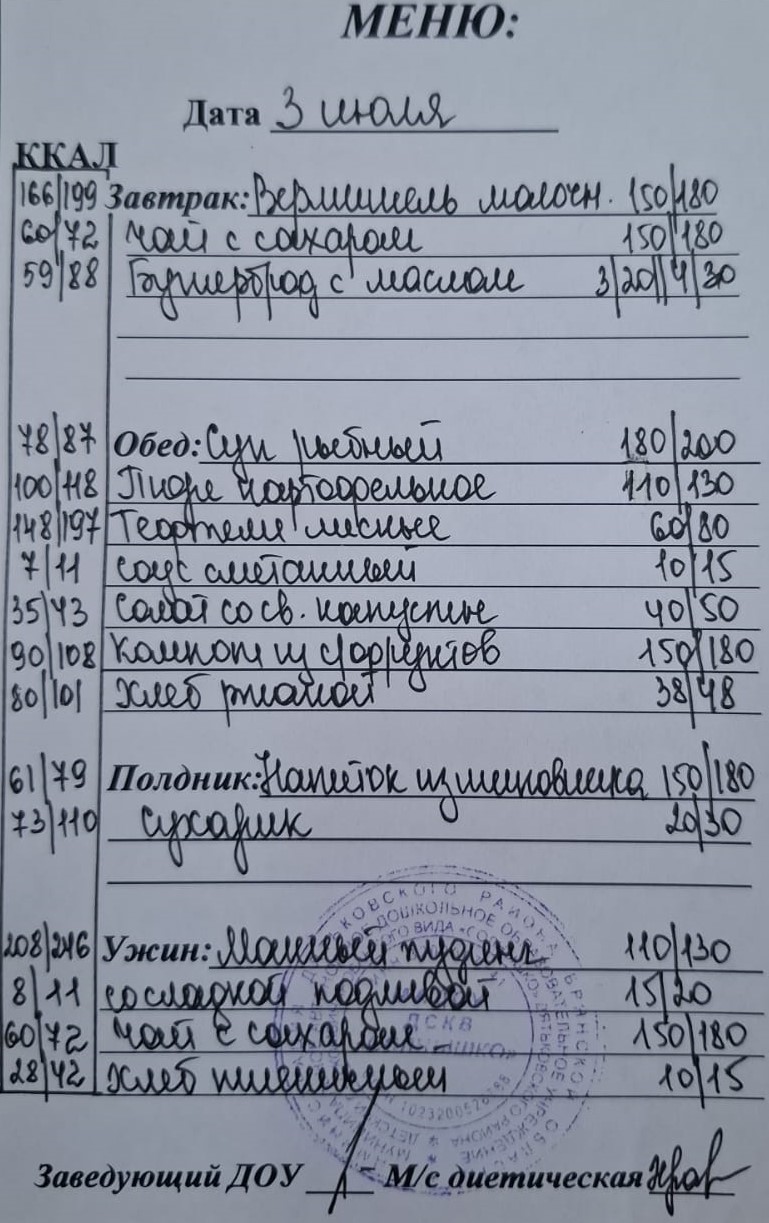 МЕНЮ:
Дата 3 июля
ККАЛ
166/199 Завтрак: Вермишель молочн. 150/180
60/72 Чай с сахаром 150/180
59/88 Бутерброд с маслом 3/20//4/30
78/87 Обед: Суп рыбный 180/200
100/118 Пюре картофельное 110/130
148/197 Тефтели мясные 60/80
7/11 соус сметанный 10/15
35/43 Салат со св. капусты 40/50
90/108 Компот из с/фруктов 150/180
80/101 Хлеб ржаной 38/48
61/79 Полдник: Напиток из шиповника 150/180
73/110 Сухарик 20/30
208/246 Ужин: Манный пудинг 110/130
8/11 со сладкой подливой 15/20
60/72 Чай с сахаром 150/180
28/42 Хлеб пшеничный 10/15
Заведующий ДОУ М/с диетическая